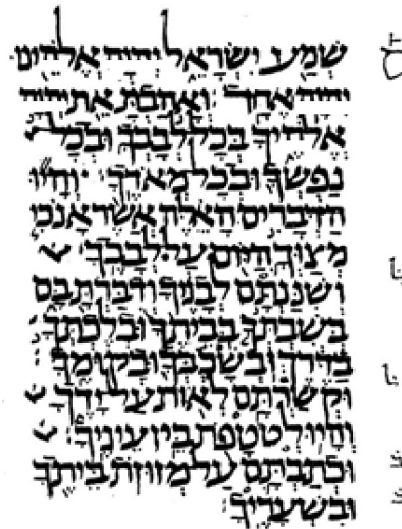 שְׁמַע יִשְׂרָאֵל יְהוָה אֱלֹהֵינוּ
יְהוָה אֶחָד׃ וְאָהַבְתָּ אֵת יְהוָה
אֱלֹהֶיךָ בְּכָל לְבָבְךָ וּבְכָל
נַפְשְׁךָ וּבְכָל מְאֹדֶךָ׃ וְהָיוּ
הַדְּבָרִים הָאֵלֶּה אֲשֶׁר אָנֹכִי
מְצַוְּךָ הַיּוֹם עַל לְבָבֶךָ׃
וְשִׁנַּנְתָּם לְבָנֶיךָ וְדִבַּרְתָּ בָּם
בְּשִׁבְתְּךָ בְּבֵיתֶךָ וּבְלֶכְתְּךָ
בַדֶּרֶךְ וּבְשָׁכְבְּךָ וּבְקוּמֶךָ׃
וּקְשַׁרְתָּם לְאוֹת עַל יָדֶךָ
וְהָיוּ לְטֹטָפֹת בֵּין עֵינֶיךָ׃
וּכְתַבְתָּם עַל מְזוּזֹת בֵּיתֶךָ
וּבִשְׁעָרֶיךָ׃